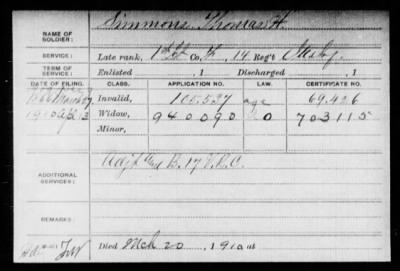 NAME OF SOLDIER: Simmons, Thomas H.
SERVICE: Late rank, 1st Lt Co. H, 14 Reg't
TERM OF SERVICE: Enlisted , 1 Discharged , 1
DATE OF FILING. CLASS. APPLICATION NO. LAW. CERTIFICATE NO.
Invalid, 105.537 age 69.426
1910 Apl 13 Widow, 940090 O 703115
Minor,
ADDITIONAL SERVICES: Adjt B. 17 V.R.C.
REMARKS:
Died Mch 20 , 1910 at